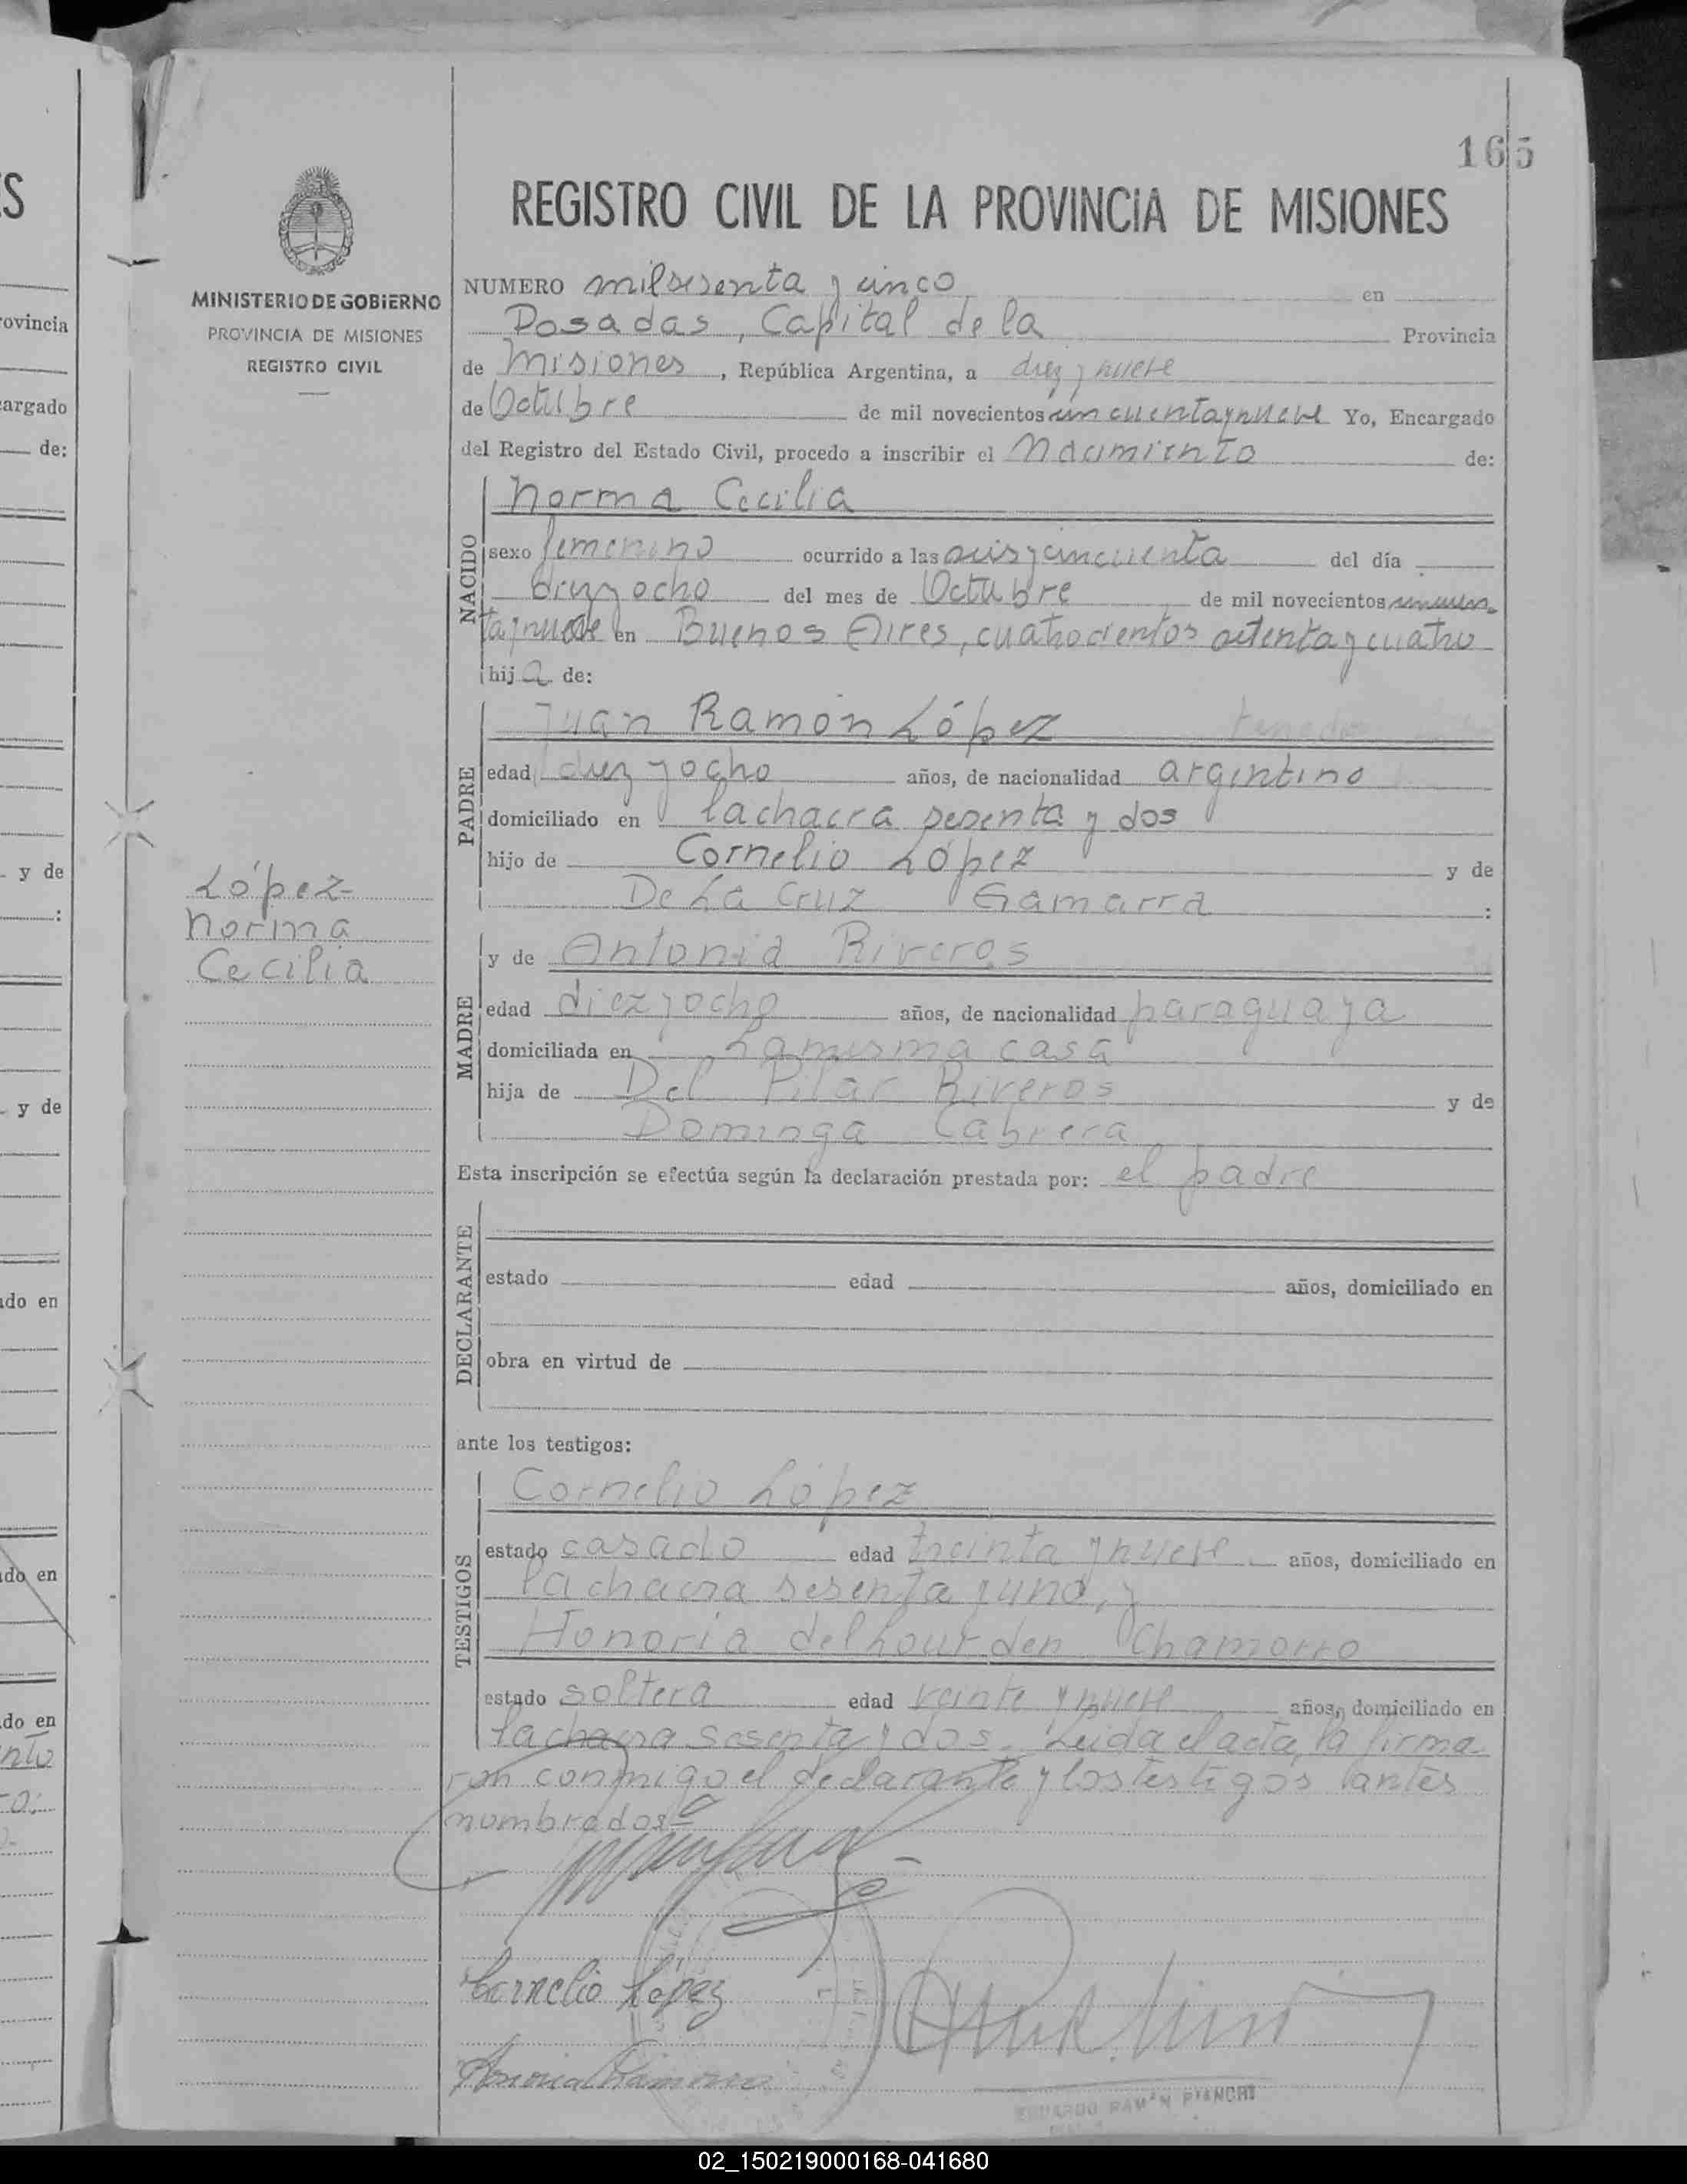 165
REGISTRO CIVIL DE LA PROVINCIA DE MISIONES
MINISTERIO DE GOBIERNO
PROVINCIA DE MISIONES
REGISTRO CIVIL
NUMERO mil sesenta y cinco en
Posadas, Capital de la Provincia
de Misiones, República Argentina, a diez y nueve
de Octubre de mil novecientos cincuenta y nueve Yo, Encargado
del Registro del Estado Civil, procedo a inscribir el Nacimiento de:
NACIDO
Norma Cecilia
sexo femenino ocurrido a las seis y cincuenta del día
diez y ocho del mes de Octubre de mil novecientos cincuen
ta y nueve en Buenos Aires, cuatrocientos setenta y cuatro
hija de:
PADRE
Juan Ramón López
edad diez y ocho años, de nacionalidad argentino
domiciliado en la chacra sesenta y dos
hijo de Cornelio López y de
De La Cruz Gamarra :
López-
Norma
Cecilia
MADRE
y de Antonia Riveros
edad diez y ocho años, de nacionalidad paraguaya
domiciliada en La misma casa
hija de Del Pilar Riveros y de
Dominga Cabrera
Esta inscripción se efectúa según la declaración prestada por: el padre
DECLARANTE
estado edad años, domiciliado en
obra en virtud de
ante los testigos:
TESTIGOS
Cornelio López
estado casado edad treinta y nueve años, domiciliado en
la chacra sesenta y uno, y
Honoria del Lourden Chamorro
estado soltera edad veinte y nueve años, domiciliado en
la chacra sesenta y dos. Leida el acta, la firma
ron conmigo el declarante y los testigos antes
nombrados=
Cornelio López
Honoria Chamorro
EDUARDO RAMÓN BIANCHI
S
ovincia
argado
de:
y de
:
y de
do en
do en
do en
02_150219000168-041680